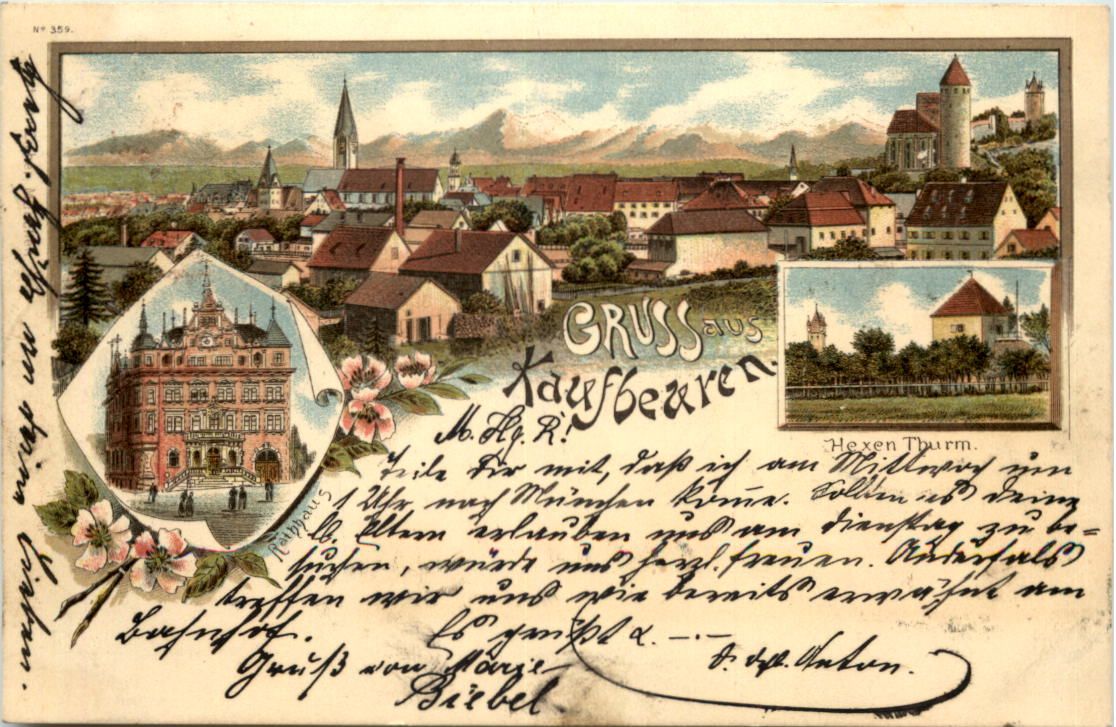 No 359.
GRUSS aus
Kaufbeuren.
Hexen Thurm.
Rathhaus
M. Hg. R!
Teile Dir mit, daß ich am Mittwoch um
1 Uhr nach München kom̄e. Sollten es Deine
lb. Eltern erlauben uns am Dienstag zu be=
suchen, würde uns herzl. freuen. Anderfalls
treffen wir uns wie bereits erwähnt am
Bahnhof.
Es grüßt
Anton.
Gruß von Marie
Biebel